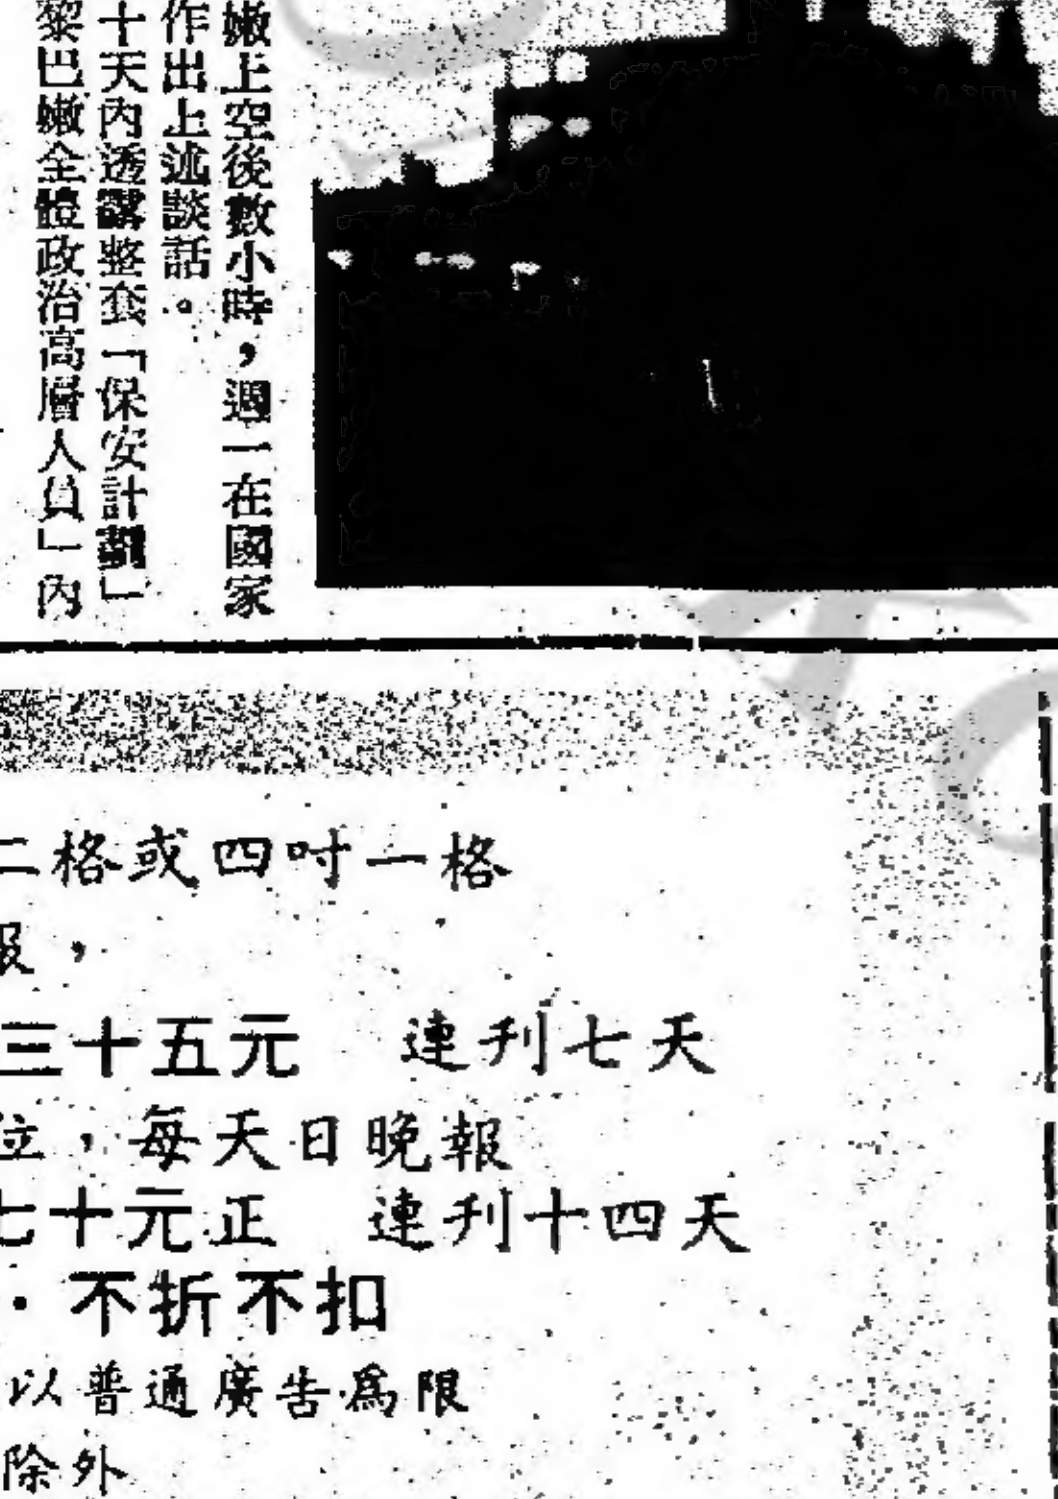 嫩上空後數小時，週一在國家
作出上述談話。
十天內透露整套「保安計劃」
黎巴嫩全體政治高層人員」內
二格或四吋一格
報，
三十五元　連刋七天
位，每天日晚報
七十元正　連刋十四天
·不折不扣
以普通廣告爲限
除外